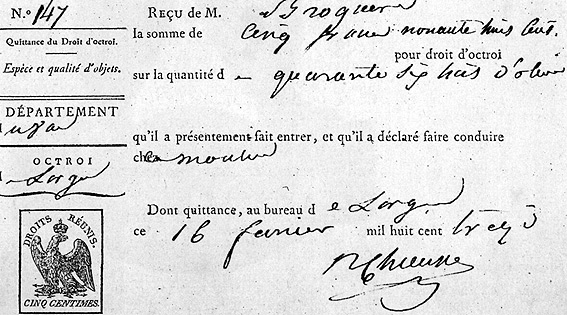 N.º 147
Quittance du Droit d'octroi.
Espèce et qualité d'objets.
DÉPARTEMENT
du Var
OCTROI
de Lorgues
DROITS RÉUNIS.
CINQ CENTIMES.
REÇU de M.
la somme de Cinq francs nonante huit cent.
pour droit d'octroi
sur la quantité d e quarante six d'olive
qu'il a présentement fait entrer, et qu'il a déclaré faire conduire
moulin
Dont quittance, au bureau d e Lorgues
ce 16 janvier mil huit cent treize